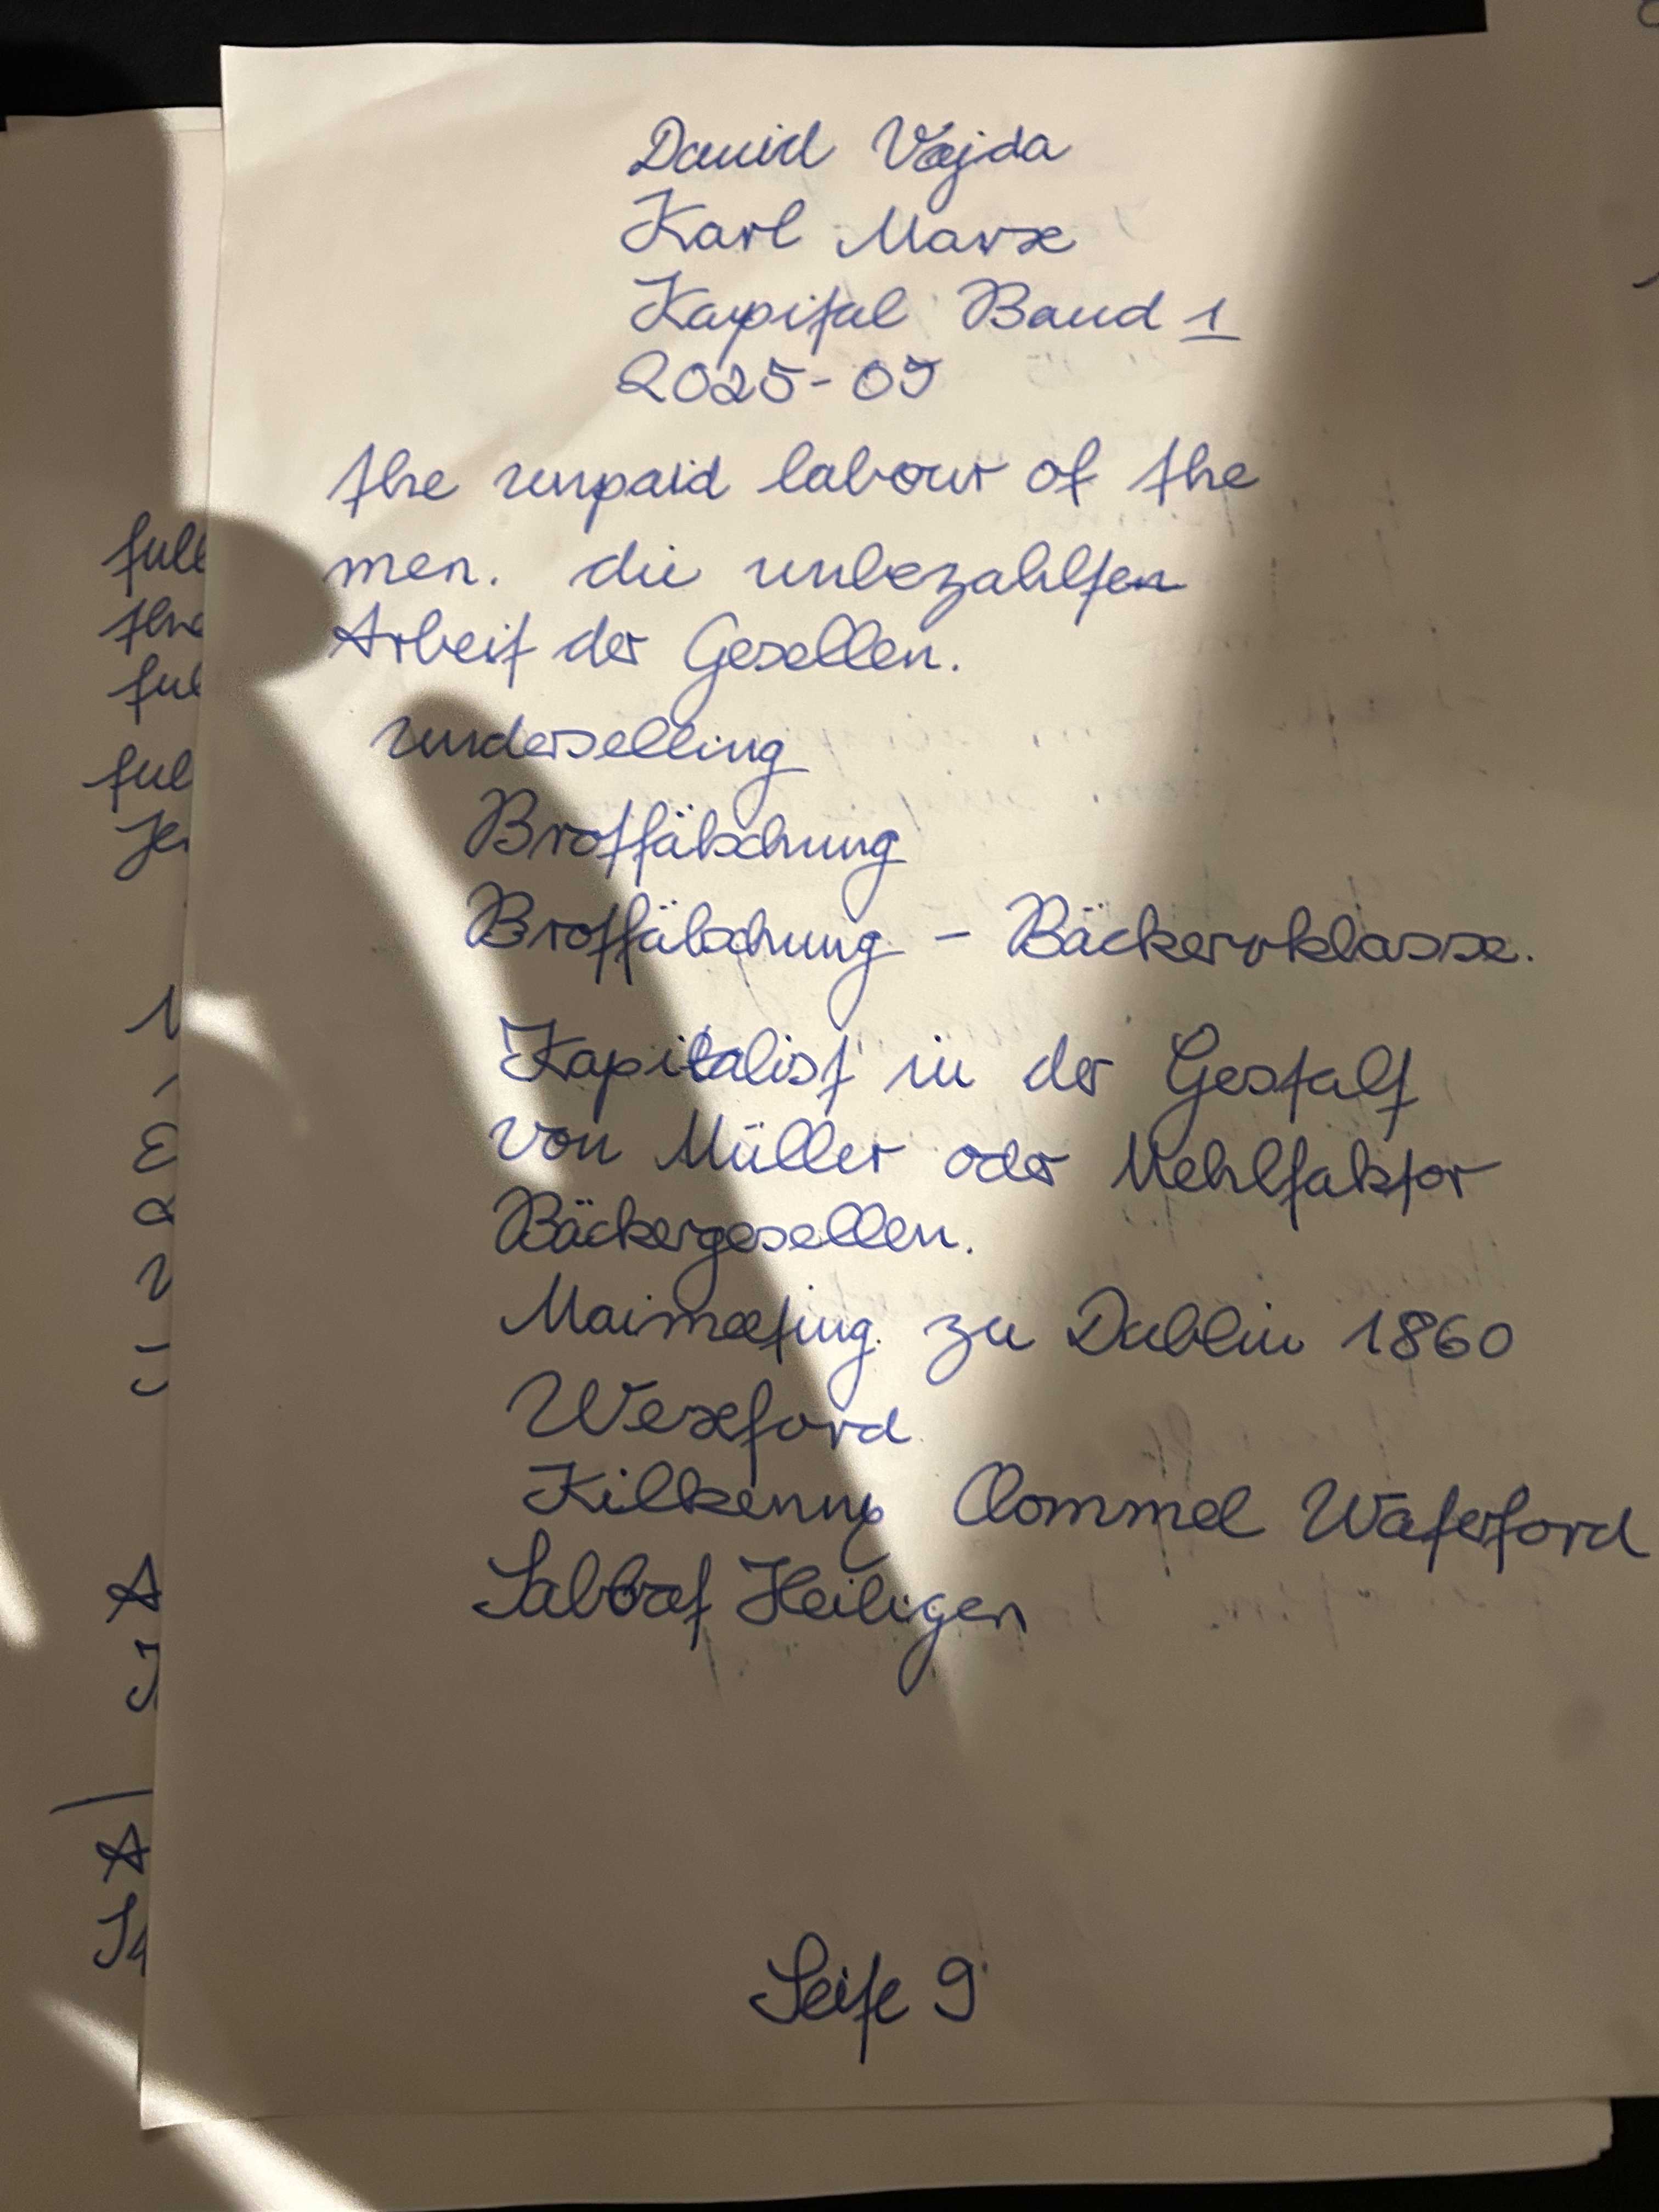 David Vajda
Karl Marx
Kapital Band 1
2025-09
the unpaid labour of the
men. die unbezahlten
Arbeit der Gesellen.
underselling
Brotfälschung
Brotfälschung - Bäckerklasse.
Kapitalist in der Gestalt
von Müller oder Mehlfaktor
Bäckergesellen.
Maimeeting zu Dublin 1860
Wexford
Kilkenny Clommel Waterford
Sabbat Heiligen
Seite 9